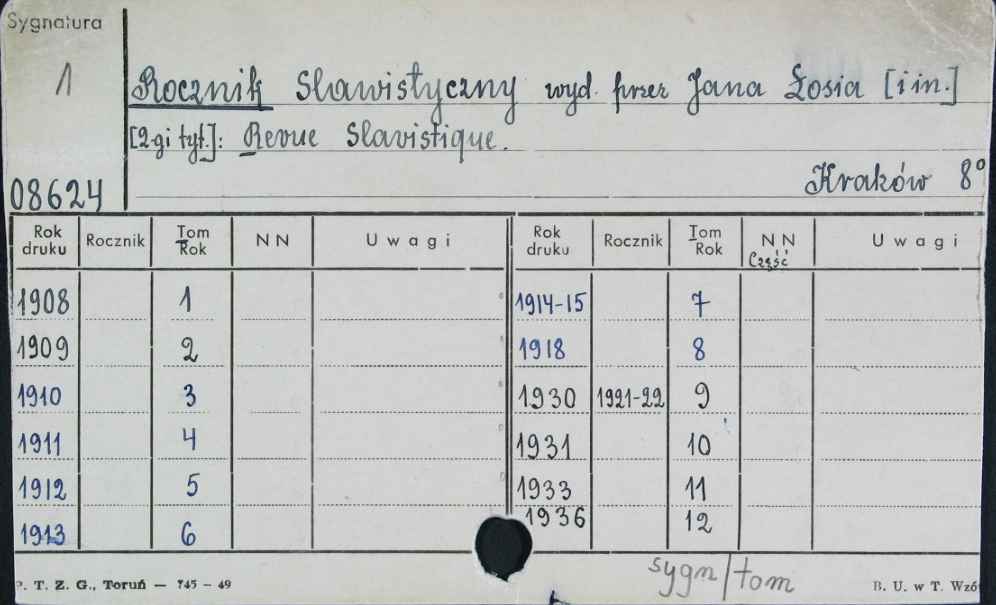 Sygnatura
1
Rocznik Slawistyczny wyd. przez Jana Łosia [i in.]
[2-gi tyt.]: Revue Slavistique.
Kraków 8°
08624
Rok druku Rocznik Tom Rok NN Uwagi Rok druku Rocznik Tom Rok NN Część Uwagi
1908 1 1914-15 7
1909 2 1918 8
1910 3 1930 1921-22 9
1911 4 1931 10
1912 5 1933 11
1913 6 1936 12
sygn/tom
P. T. Z. G., Toruń — 745 – 49 B. U. w T. Wzó